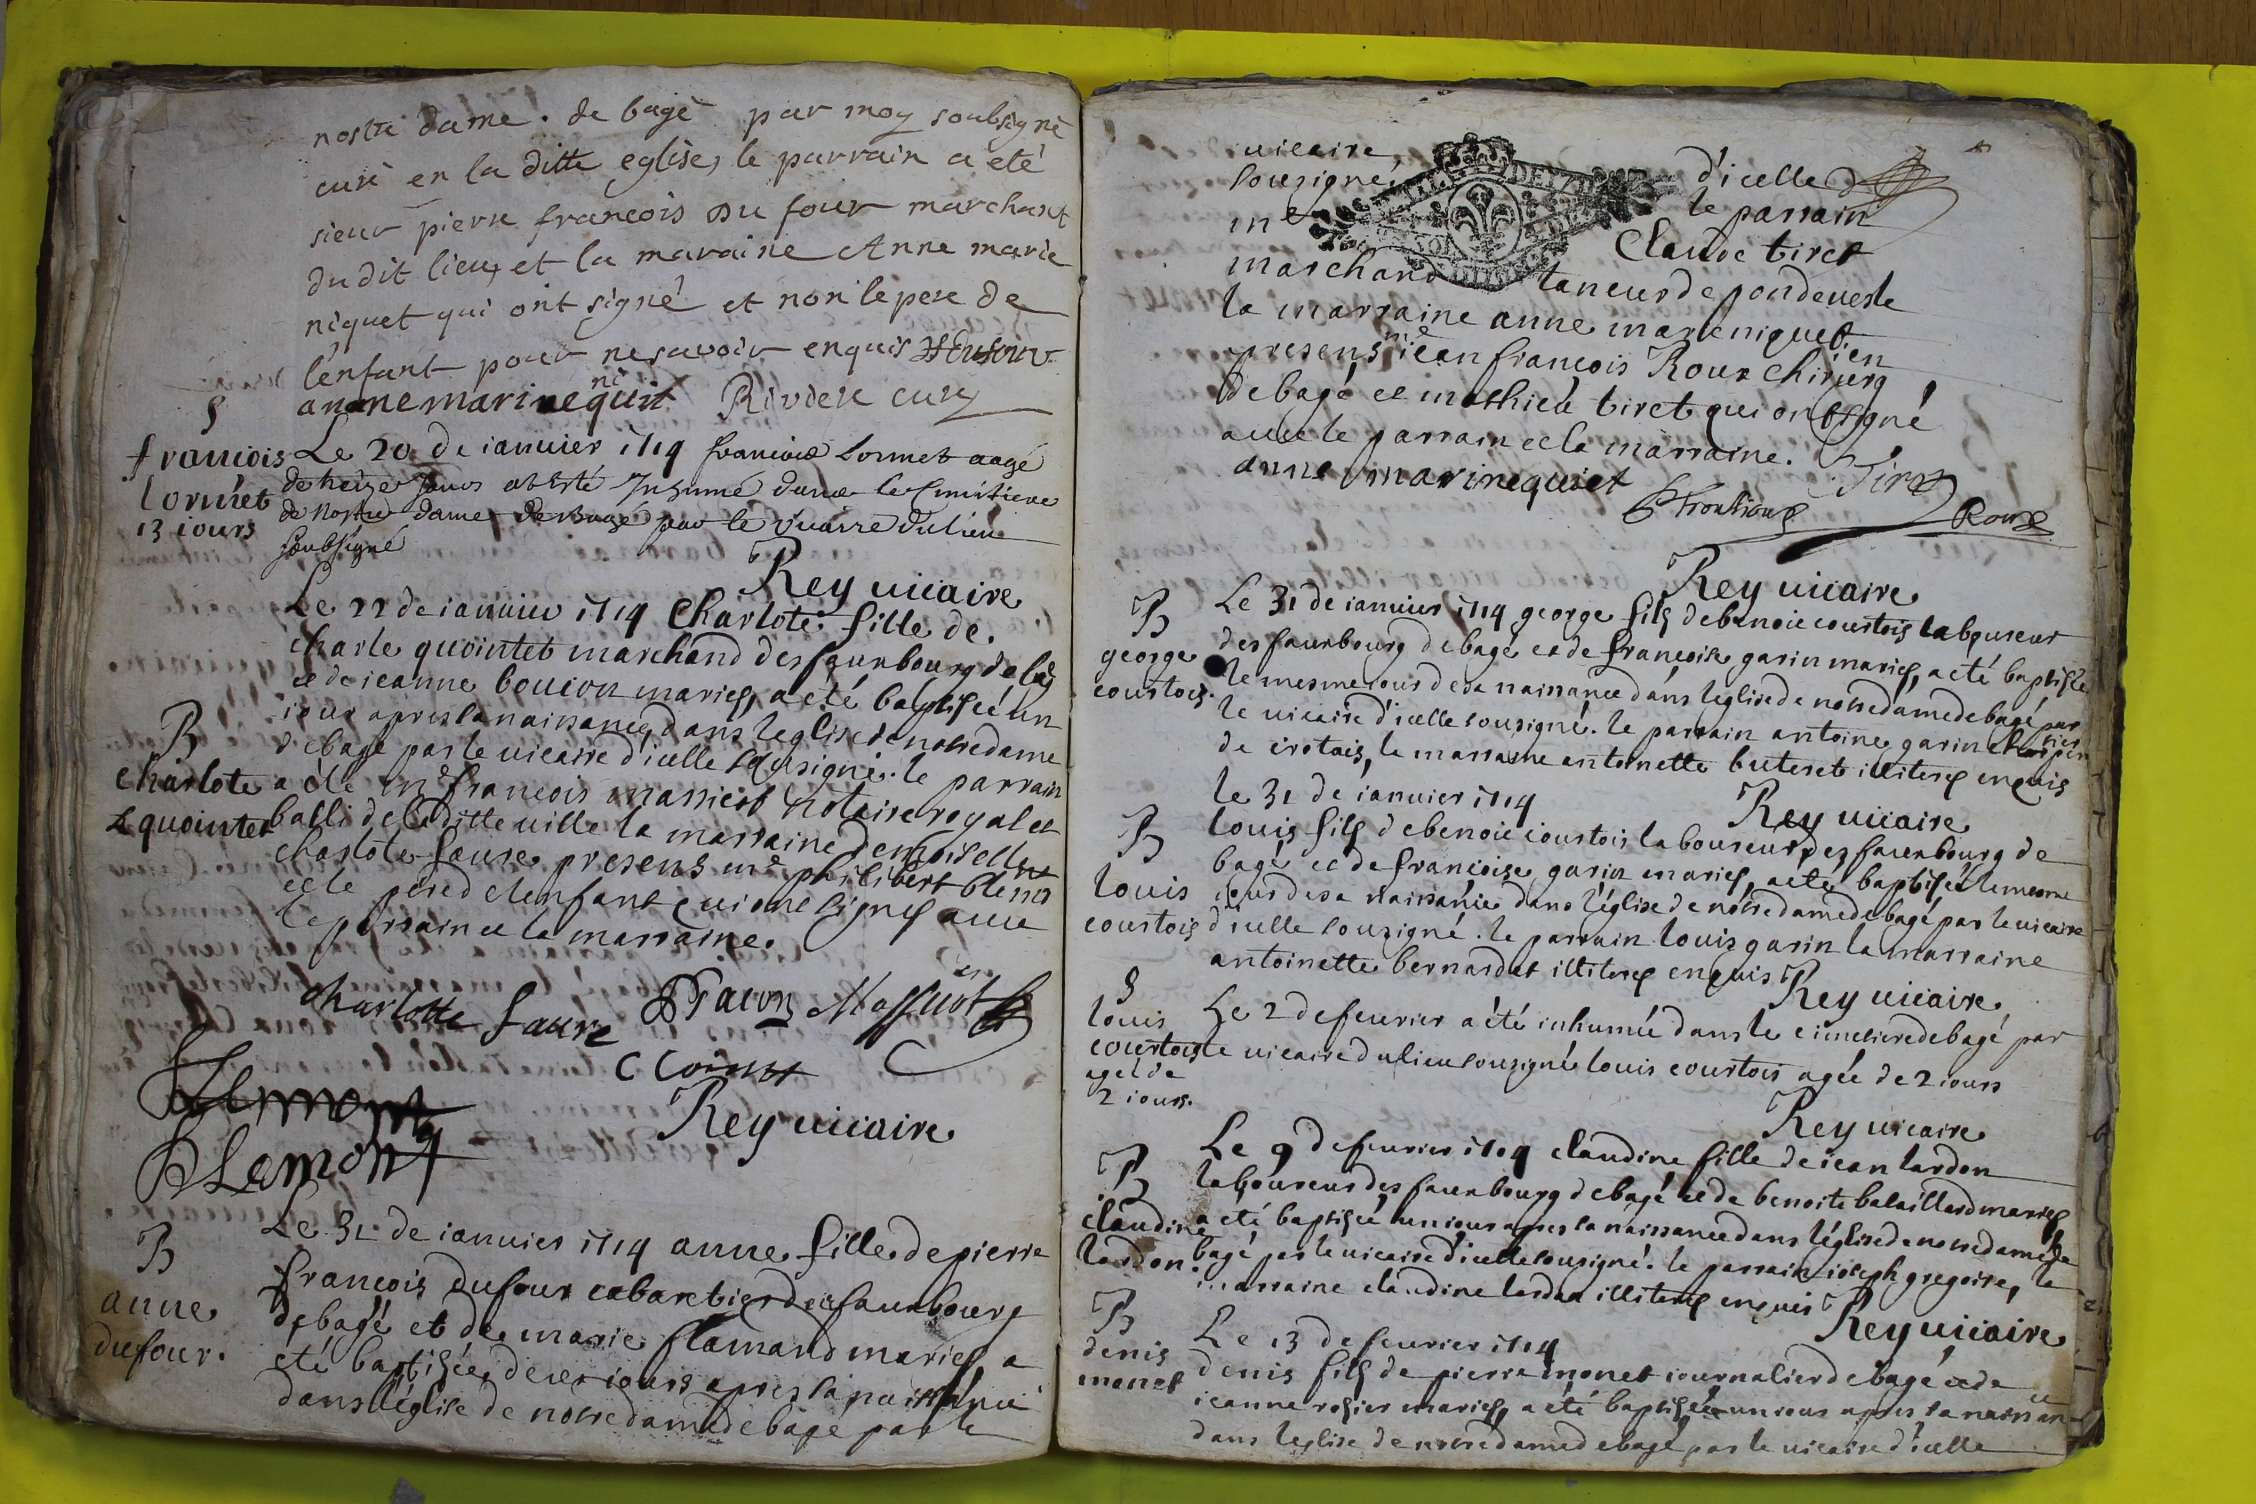 nostre dame . de bagé par moy soubsigné
curé en la ditte eglise, le parrain a eté
sieur pierre francois Du four marchant
du dit lieu, et la maraine Anne marie
niquet qui ont signé et non le pere de
l'enfant pour ne savoir enquis
anne mari Riviere curé
S
francois
lornet
13 iours
Le 20 de ianvier 1714 francois Lornet aagé
de treize Jours at Esté Inhumé dans le Cimitiere
de Nostre dame de Bagé par le vicaire du lieu
soubsigné
Rey vicaire
B
charlote
quointet
Le 22 de ianvier 1714 Charlote fille de
charle quointet marchand des fauxbourg de bagé
et de ieanne bouion mariés, a eté baptiseé un
iour apres sa naissance, dans leglise de nostre dame
de bagé par le vicaire d'icelle sousigné. le parrain
a été me francois massiot notaire royal et
balli de laditte ville la marraine demoiselle
charlote faure presens me philibert
et le pere de l'enfant qui ont signés avec
le parrain et la marraine.
charlotte faure Massiot
Lemont
Rey vicaire
Lemont
B
anne
dufour.
Le 31 de ianvier 1714 anne fille de pierre
francois dufour cabaretier des fauxbourg
de bagé et de marie flamand mariés, a
eté baptisée deux iours apres sa naissance
dans l'église de nostre dame de bagé par le
vicaire d'icelle
sousigné, le parrain
me Claude tiret
marchand taneur de pondevesle
la marraine anne marie niquet
presens me iean francois Roux chirurgien
de bagé et mathieu tiret qui ont signé
avec le parrain et la marraine.
anne mariniquet Tiret
Roux
Rey vicaire
B
george
courtois.
Le 31 de ianvier 1714 george fils de benoit courtois laboureur
des fauxbourg de bagé et de francoise garin mariés, a eté baptisé
le mesme iour de sa naissance dans leglise de nostre dame de bagé par
le vicaire d'icelle sousigné. le parrain antoine garin charpentier
de crotais, le marraine antoinette buteret illiterés enquis
Rey vicaire
B
louis
courtois
le 31 de ianvier 1714
louis fils de benoit courtois laboureur des fauxbourg de
bagé et de francoise garin mariés, a eté baptisé le mesme
iour de sa naissance dans l'église de nostre dame de bagé par le vicaire
d'icelle sousigné. le parrain louis garin la marraine
antoinette bernardet illiterés enquis
Rey vicaire
S
louis
courtois
ageé de
2 iours.
Le 2 de fevrier a été inhumée dans le cimetiere de bagé par
le vicaire du lieu sousigné louis courtois ageé de 2 iours
Rey vicaire
B
claudine
lardon.
Le 9 de fevrier 1714 claudine fille de iean lardon
laboureur des fauxbourg de bagé et de benoite bataillard mariés
a eté baptisée un iour apres sa naissance dans l'église de nostre dame de
bagé par le vicaire d'icelle sousigné. le parrain ioseph gregoire, la
marraine claudine lardon illiterés enquis
Rey vicaire
B
denis
monet
Le 13 de fevrier 1714
denis fils de pierre monet iournalier de bagé et de
ieanne rosier mariés, a été baptisée un iour apres sa naissance
dans leglise de nostre dame de bagé par le vicaire d'icelle